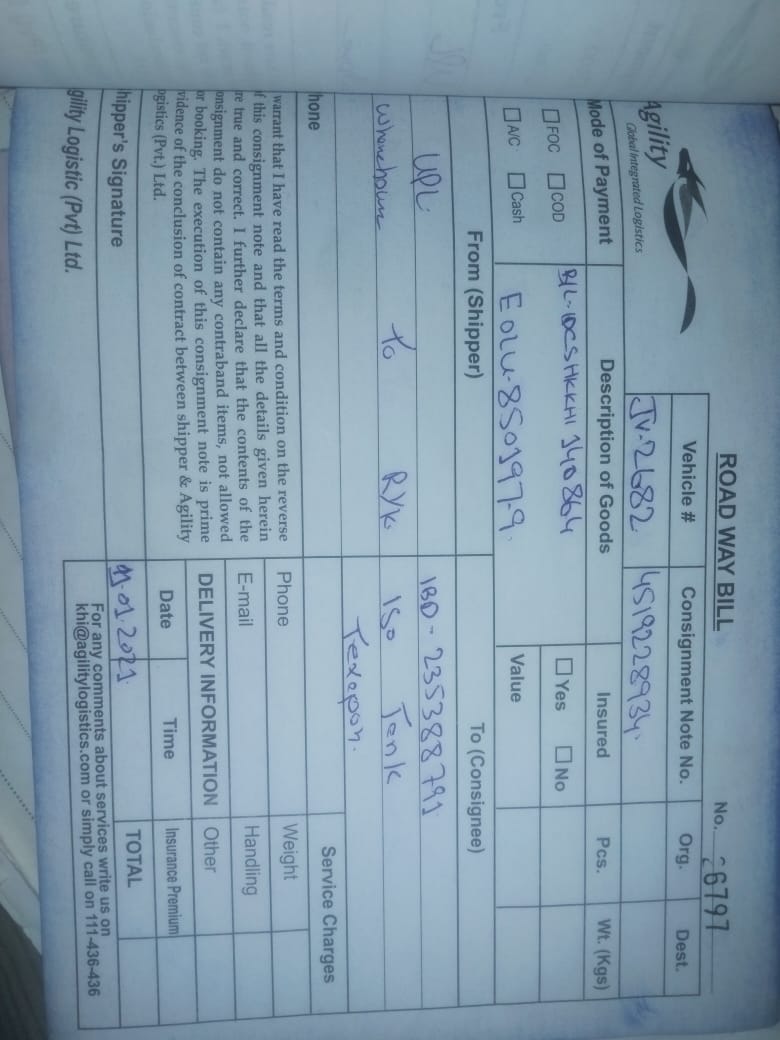 ROAD WAY BILL
No. 26797
Agility
Global Integrated Logistics
Vehicle # Consignment Note No. Org. Dest.
JV-2682 4519228934
Mode of Payment Description of Goods Insured Pcs. Wt. (Kgs)
FOC COD B/L- SHKKHI 140864 Yes No
A/C Cash EOLU-850197-9 Value
From (Shipper) To (Consignee)
UPL IBD - 235388791
To RYK ISO Tank
Texapon
hone Service Charges
warrant that I have read the terms and condition on the reverse
f this consignment note and that all the details given herein
re true and correct. I further declare that the contents of the
onsignment do not contain any contraband items, not allowed
or booking. The execution of this consignment note is prime
vidence of the conclusion of contract between shipper & Agility
ogistics (Pvt.) Ltd.
Phone Weight
E-mail Handling
DELIVERY INFORMATION Other
Date Time Insurance Premium
hipper's Signature 11.01.2021 TOTAL
gility Logistic (Pvt) Ltd.
For any comments about services write us on
khi@agilitylogistics.com or simply call on 111-436-436